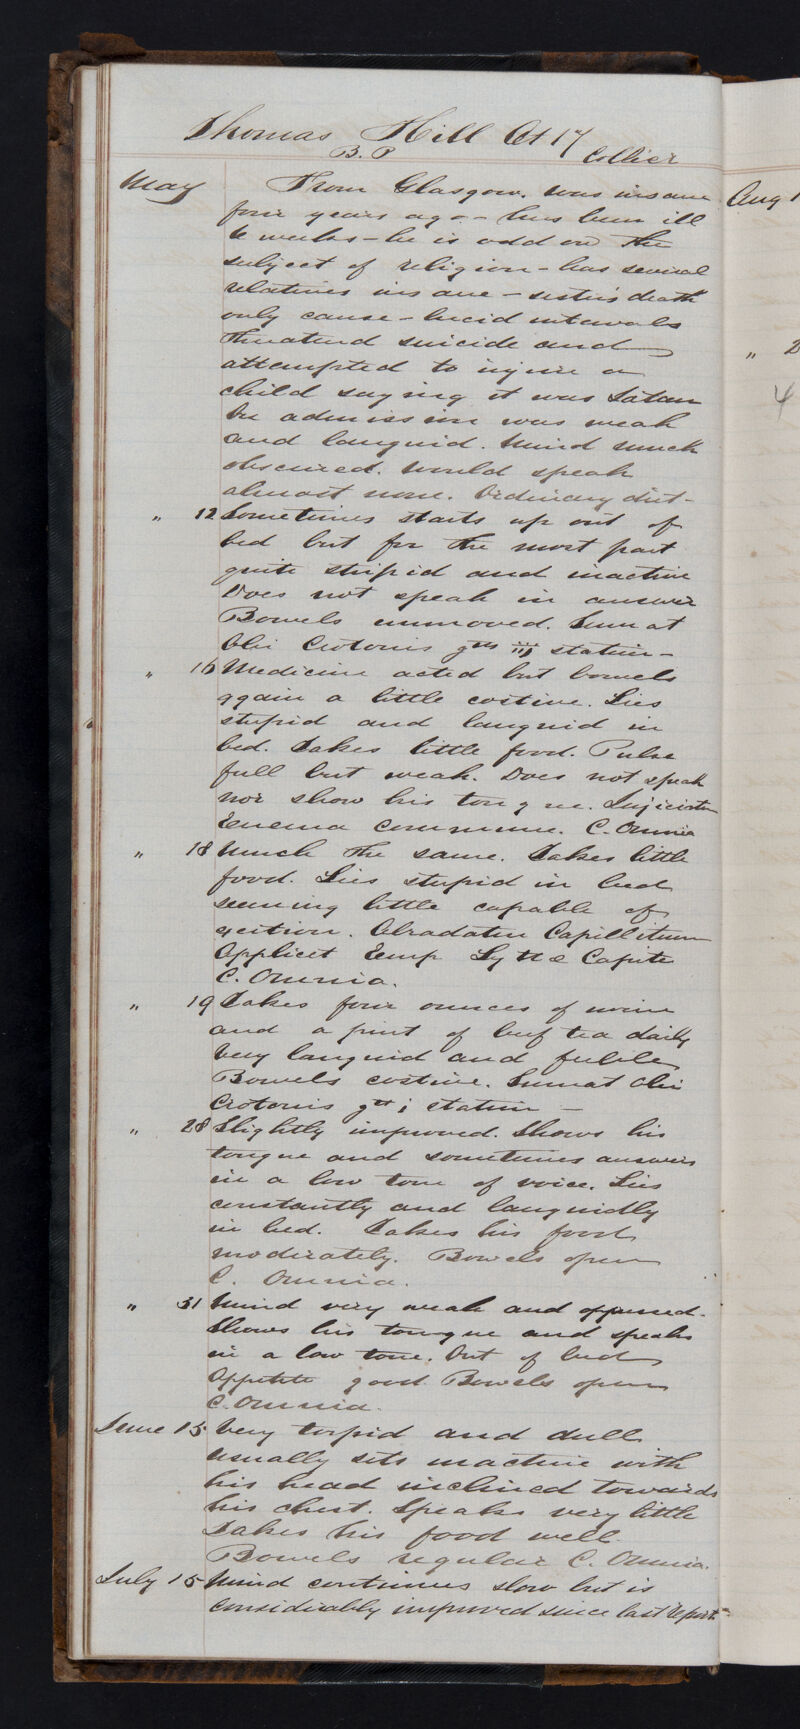 Thomas Hill Æt 17
B. P Collier
May From Glasgow. was insane
four years ago - has been ill
6 weeks - he is odd on the
subject of religion - has several
relatives insane - sister's death
only cause - lucid intervals
threatend suicide and
attempted to injure a
child saying it was Satan
On admission was weak
and languid. Mind much
obscured. Would speak
almost none. Ordinary diet -
" 12 Sometimes starts up out of
bed but for the most part
quite stupid and inactive
Does not speak in answer
Bowels unmoved. Sumat
Olei Crotonis gtts iij statim -
" 16 Medicine acted but bowels
again a little costive. Lies
stupid and languid in
bed. Takes little food. Pulse
full but weak. Does not speak
nor show his tongue. Injiciatur
Enema commune. C. Omnia
" 18 Much the same. Takes little
food. Lies stupid in bed
seeming little capable of
exertion. Abradatur Capillitium
Applicet Emp Lyttæ Capite
C. Omnia.
" 19 Takes four ounces of wine
and a pint of beef tea daily
Very languid and feeble
Bowels costive. Sumat Olei
Crotonis gtt i statim -
" 28 Slightly improved. Shows his
tongue and sometimes answers
in a low tone of voice. Lies
constantly and languidly
in bed. Takes his food
moderately. Bowels open
C. Omnia.
" 31 Mind very weak and oppressed.
Shows his tongue and speaks
in a low tone. Out of bed
Appetite good. Bowels open
C. Omnia.
June 15 Very torpid and dull
usually sits inactive with
his head inclined towards
his chest. Speaks very little
Takes his food well.
Bowels regular C. Omnia.
July 15 Mind continues slow but is
considerably improved since last report.
Aug 1
" 2
4